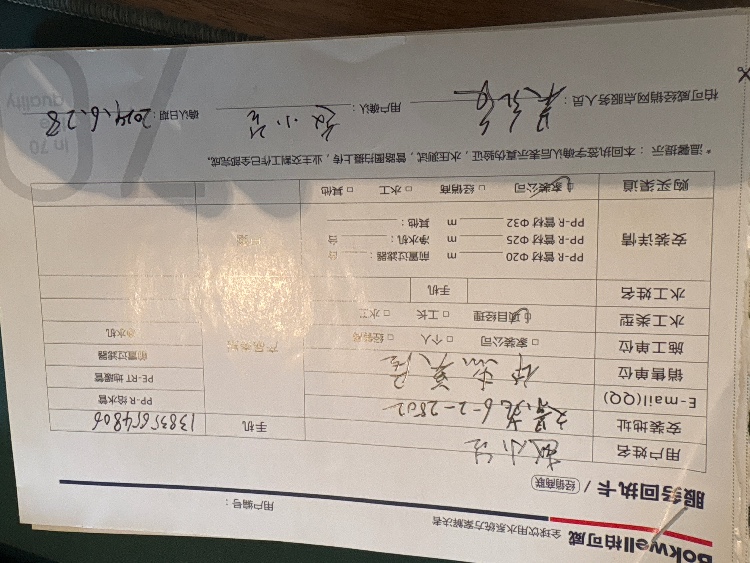 Bokwell柏可威 全球饮用水系统方案解决者
服务回执卡 / 经销商联
用户编号：
用户姓名
手机 13835654806
安装地址 6-2-2802
E-mail(QQ)
销售单位
施工单位 □ 家装公司 □ 个人 □ 经销商
水工类型 项目经理 □ 工长 □ 水工
水工姓名 手机
安装详情
PP-R 管材 Φ20 m 前置过滤器： 台
PP-R 管材 Φ25 m 净水机： 台
PP-R 管材 Φ32 m 其他：
购买渠道 家装公司 □ 经销商 □ 水工 □ 其他
PP-R 给水管
PE-RT 地暖管
前置过滤器
净水机
*温馨提示：本回执签字确认后表示真伪验伪，水压测试，管路图拍摄上传，业主交割工作已全部完成。
柏可威经销网点服务人员：
用户确认：
确认日期：2024.6.28
in 70
quality